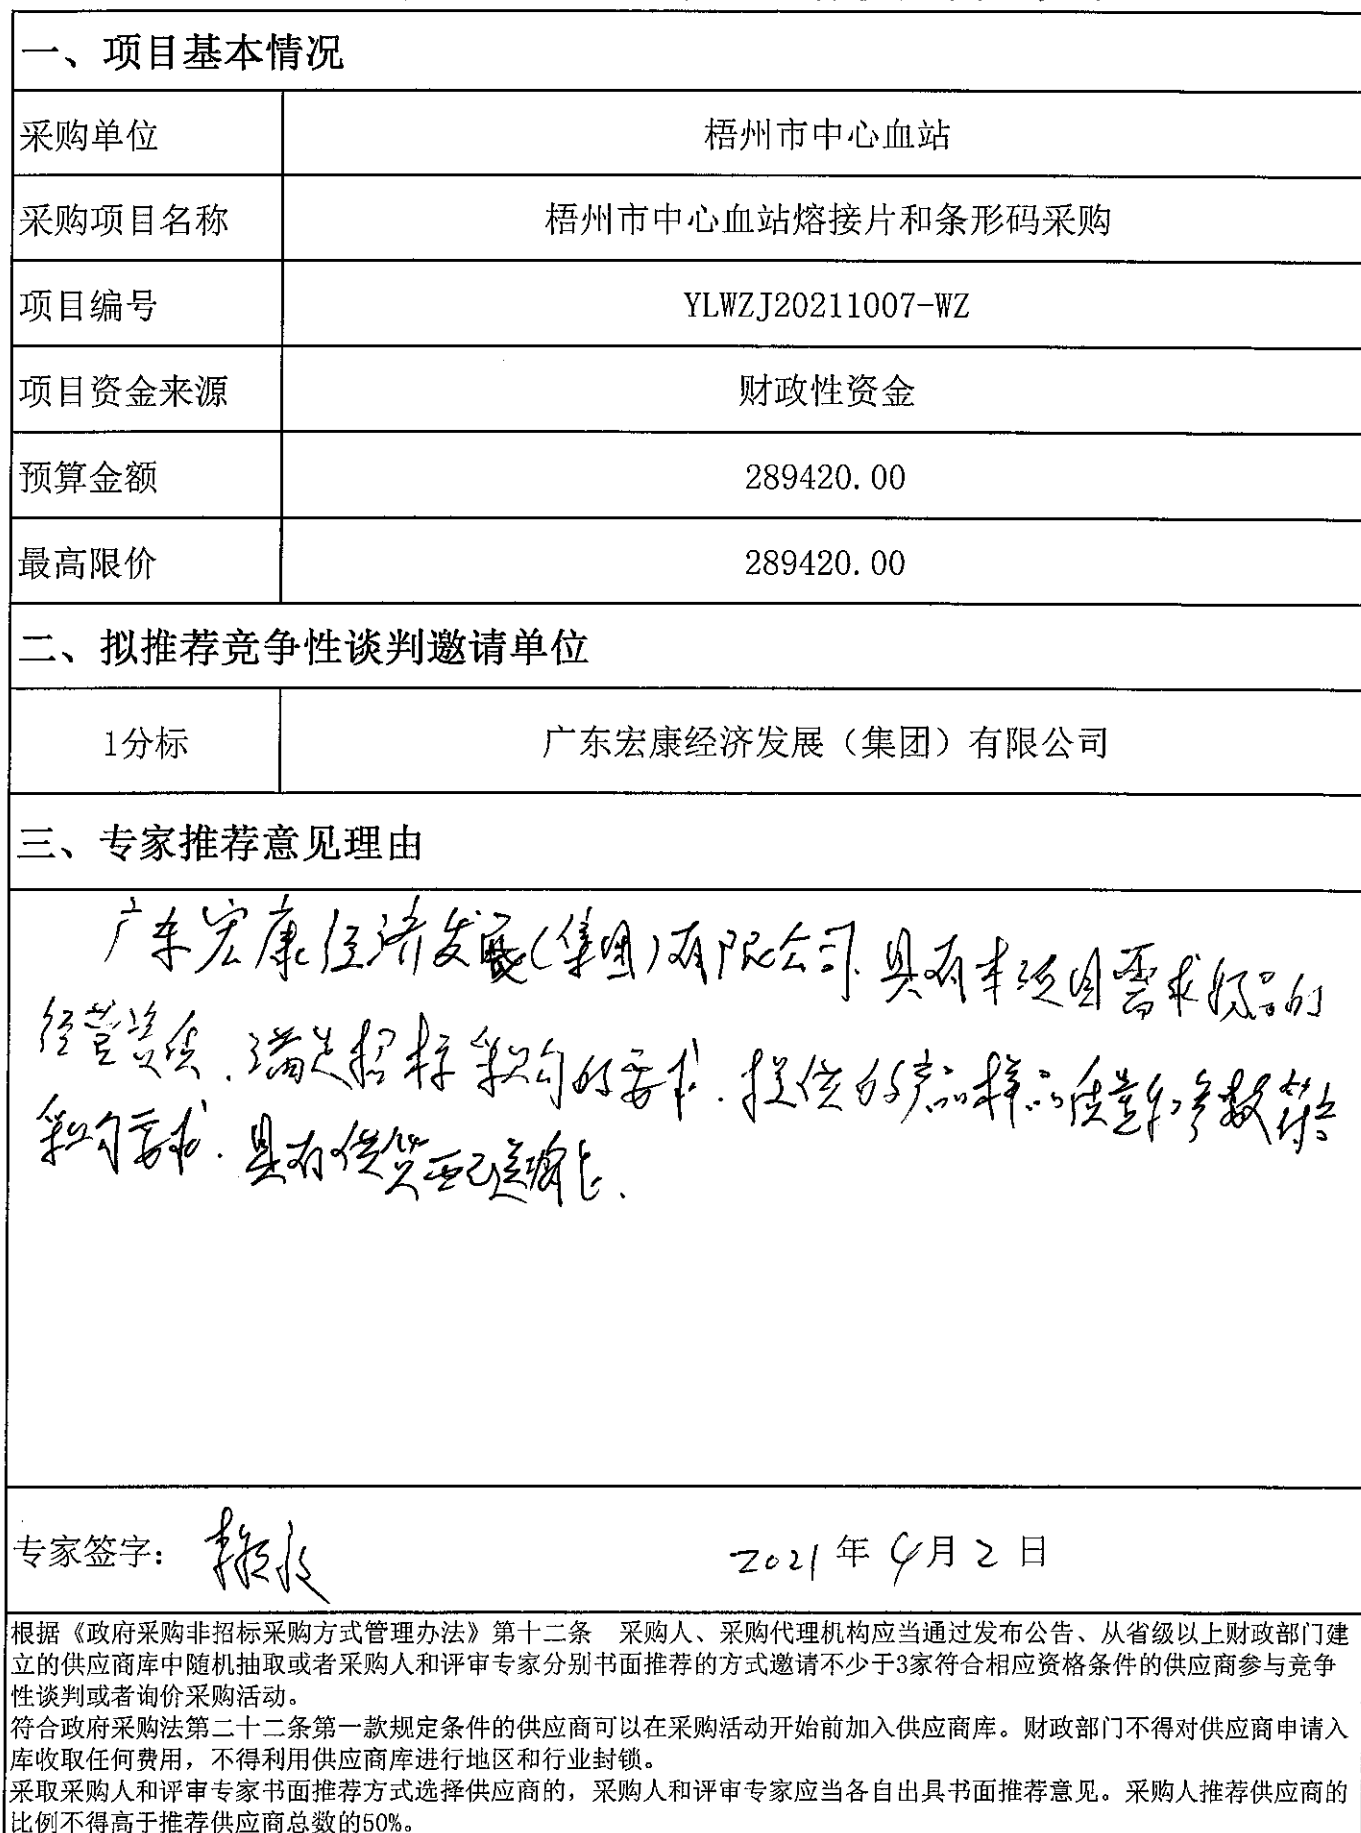 一、项目基本情况
采购单位 梧州市中心血站
采购项目名称 梧州市中心血站熔接片和条形码采购
项目编号 YLWZJ20211007-WZ
项目资金来源 财政性资金
预算金额 289420.00
最高限价 289420.00
二、拟推荐竞争性谈判邀请单位
1分标 广东宏康经济发展（集团）有限公司
三、专家推荐意见理由
广东宏康经济发展(集团)有限公司具有本项目需求物品的
经营资质.满足招标采购的要求.提供的产品样品质量和参数符合
采购要求.具有供货配送
专家签字： 2021年4月2日
根据《政府采购非招标采购方式管理办法》第十二条 采购人、采购代理机构应当通过发布公告、从省级以上财政部门建
立的供应商库中随机抽取或者采购人和评审专家分别书面推荐的方式邀请不少于3家符合相应资格条件的供应商参与竞争
性谈判或者询价采购活动。
符合政府采购法第二十二条第一款规定条件的供应商可以在采购活动开始前加入供应商库。财政部门不得对供应商申请入
库收取任何费用，不得利用供应商库进行地区和行业封锁。
采取采购人和评审专家书面推荐方式选择供应商的，采购人和评审专家应当各自出具书面推荐意见。采购人推荐供应商的
比例不得高于推荐供应商总数的50%。